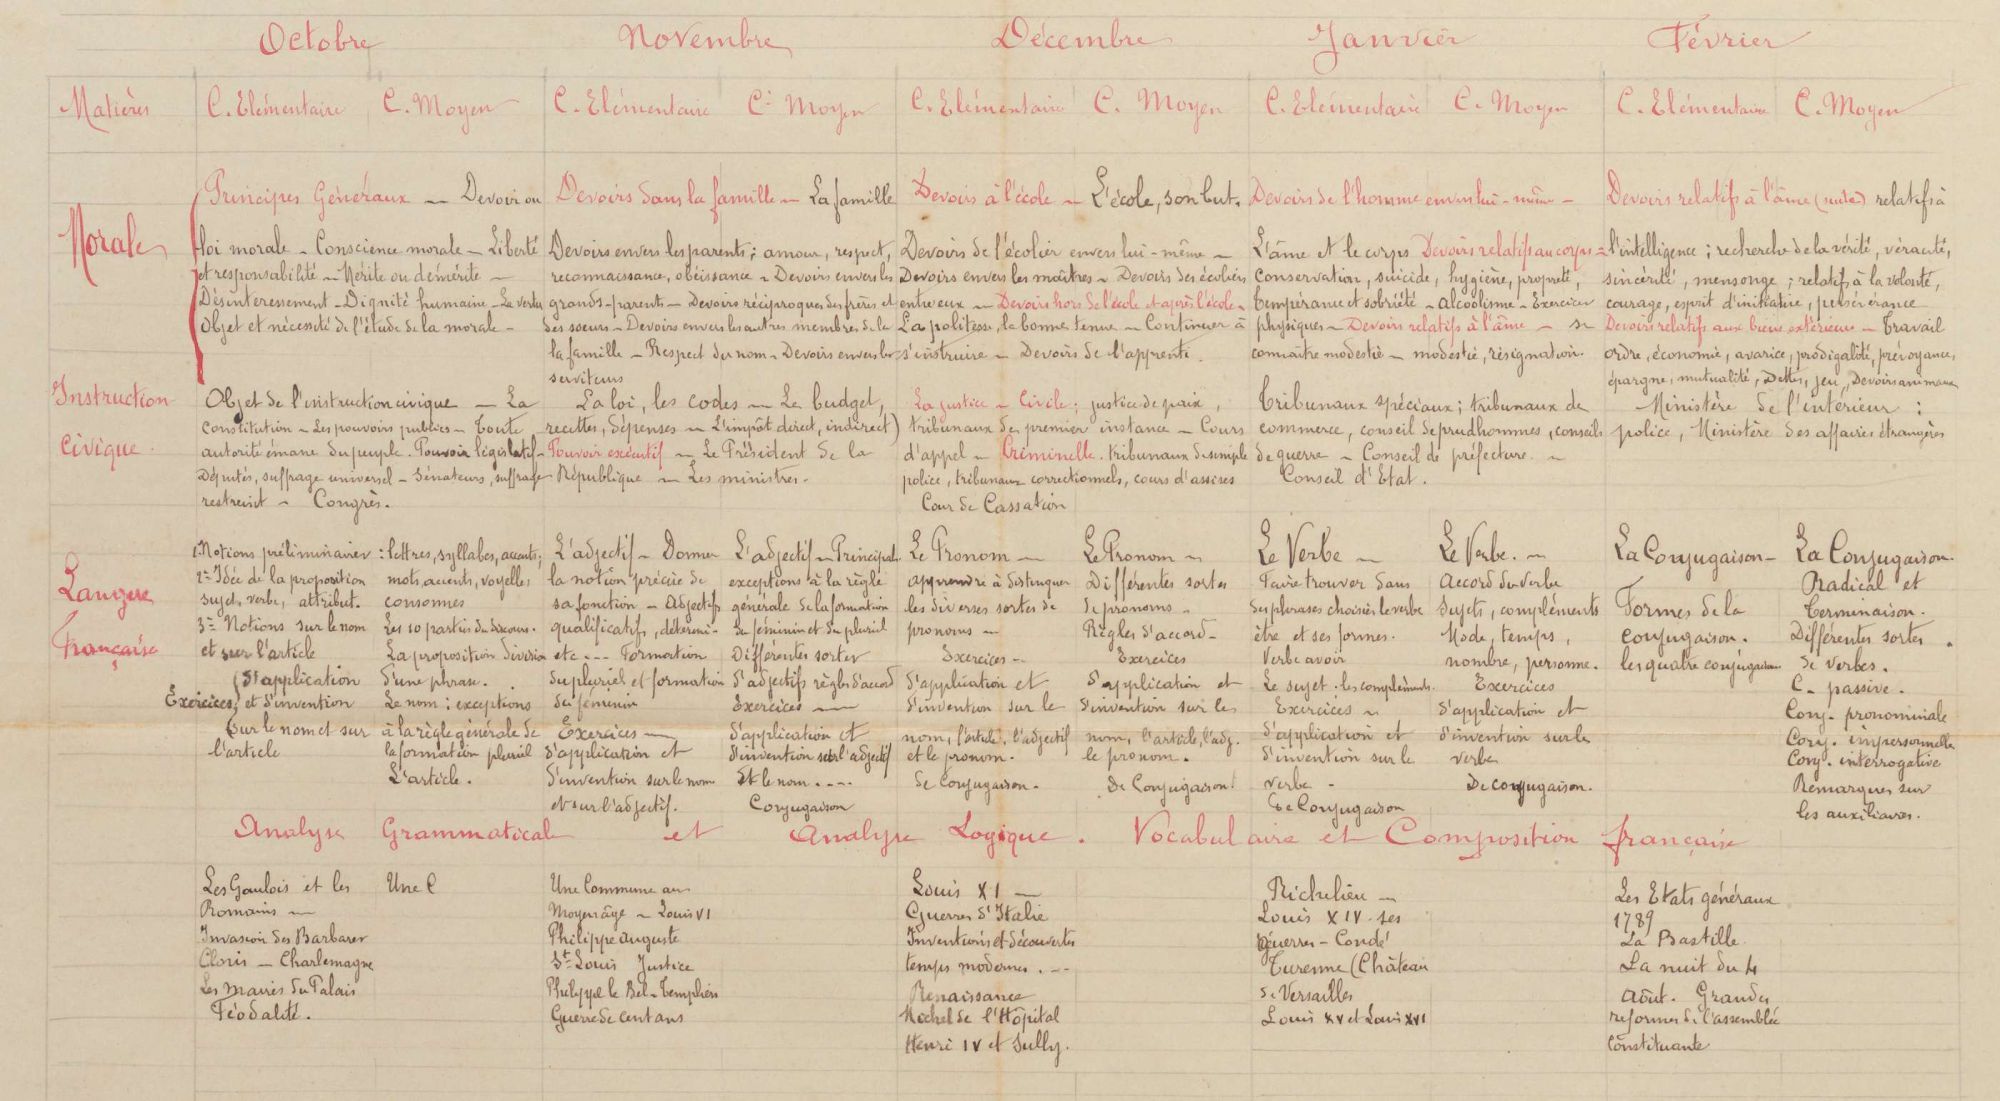 Octobre Novembre Décembre Janvier Février
Matières C. Elémentaire C. Moyen C. Elémentaire Cs Moyen C. Elémentaire C. Moyen C. Elémentaire C. Moyen C. Elémentaire C. Moyen
Morale
Principes Généraux — Devoir ou
loi morale - Conscience morale - Liberté
et responsabilité - Mérite ou démérite -
Désintéressement - Dignité humaine - La vertu
Objet et nécessité de l'étude de la morale -
Devoirs dans la famille - La famille
Devoirs envers les parents ; amour, respect,
reconnaissance, obéissance - Devoirs envers les
grands-parents - Devoirs réciproques des frères et
des soeurs - Devoirs envers les autres membres de la
la famille - Respect du nom - Devoirs envers les
serviteurs
Devoirs à l'école - L'école, son but.
Devoirs de l'écolier envers lui-même -
Devoirs envers les maîtres - Devoirs des écoliers
entre eux - Devoirs hors de l'école et après l'école -
La politesse, la bonne tenue - Continuer à
s'instruire - Devoirs de l'apprenti.
Devoirs de l'homme envers lui-même -
L'âme et le corps Devoirs relatifs au corps =
Conservation, suicide, hygiène, propreté,
tempérance et sobriété - alcoolisme - Exercices
physiques - Devoirs relatifs à l'âme - se
connaître modestie - modestie, résignation.
Devoirs relatifs à l'âme (suite) relatifs à
l'intelligence ; recherche de la vérité, véracité,
sincérité, mensonge ; relatifs à la volonté,
courage, esprit d'initiative, persévérance
Devoirs relatifs aux biens extérieurs - Travail
ordre, économie, avarice, prodigalité, prévoyance,
épargne, mutualité, Dettes, jeu, Devoirs animaux
Instruction
Civique.
Objet de l'instruction civique — La
Constitution - Les pouvoirs publics - Toute
autorité émane du peuple. Pouvoir législatif -
Députés, suffrage universel - Sénateurs, suffrage
restreint - Congrès.
La loi, les codes — Le budget,
recettes, dépenses - L'impôt direct, indirect)
Pouvoir exécutif - Le Président de la
République - Les ministres.
La justice - Civile ; justice de paix,
tribunaux de premier instance - Cours
d'appel - Criminelle. tribunaux de simple
police, tribunaux correctionnels, cours d'assises
Cour de Cassation
Tribunaux spéciaux ; tribunaux de
commerce, conseil de prudhommes, conseils
de guerre - Conseil de préfecture. -
Conseil d'Etat.
Ministère de l'intérieur :
police, Ministère des affaires étrangères
Langue
Française
1. Notions préliminaires
2° Idée de la proposition
sujet, verbe, attribut.
3° Notions sur le nom
et sur l'article
d'application
Exercices et d'invention
Sur le nom et sur
l'article
: lettres, syllabes, accents ;
mots, accents, voyelles
consonnes
Les 10 parties du discours.
La proposition division
d'une phrase.
Le nom : exceptions
à la règle générale de
la formation pluriel
L'article.
L'adjectif - Donner
la notion précise de
sa fonction - Adjectifs
qualificatifs, détermi-
etc --- Formation
du pluriel et formation
du féminin
Exercices —
d'application et
d'invention sur le nom
et sur l'adjectif.
L'adjectif - Principal.
exceptions à la règle
générale de la formation
du féminin et du pluriel
Différentes sortes
d'adjectifs règles d'accord
Exercices —
d'application et
d'invention sur l'adjectif
Et le nom. ---
Conjugaison
Le Pronom —
apprendre à distinguer
les diverses sortes de
pronoms -
Exercices -
d'application et
d'invention sur le
nom, l'article, l'adjectif
et le pronom.
De Conjugaison.
Le Pronom -
Différentes sortes
de pronoms -
Règles d'accord -
Exercices
d'application et
d'invention sur les
nom, l'article, l'adj.
le pronom.
De Conjugaison.
Le Verbe -
Faire trouver dans
des phrases choisies le verbe
être et ses formes.
Verbe avoir
Le sujet. les compléments.
Exercices -
d'application et
d'invention sur le
verbe -
De Conjugaison
Le Verbe. -
Accord du verbe
Sujets, compléments
Mode, temps,
nombre, personne.
Exercices
d'application et
d'invention sur le
verbe
De conjugaison.
La Conjugaison -
Formes de la
conjugaison.
les quatre conjugaisons
La Conjugaison.
Radical et
terminaison.
Différentes sortes
de verbes.
C- passive.
Conj- pronominale
Conj. impersonnelle
Conj. interrogative
Remarques sur
les auxiliaires.
Analyse Grammaticale et Analyse Logique. Vocabulaire et Composition française
Les Gaulois et les
Romains -
Invasion des Barbares
Clovis - Charlemagne
Les Maires du Palais
Féodalité.
Une C
Une Commune au
Moyen âge - Louis VI
Philippe Auguste
St Louis Justice
Philippe le Bel - Templiers
Guerre de cent ans
Louis XI —
Guerres d'Italie
Inventions et découvertes
temps modernes. --
Renaissance
Michel de l'Hôpital
Henri IV et Sully.
Richelieu -
Louis XIV. ses
guerres - Condé
Turenne (Château
de Versailles
Louis XV et Louis XVI
Les Etats généraux
1789
La Bastille.
La nuit du 4
Août. Grandes
réformes de l'assemblée
Constituante